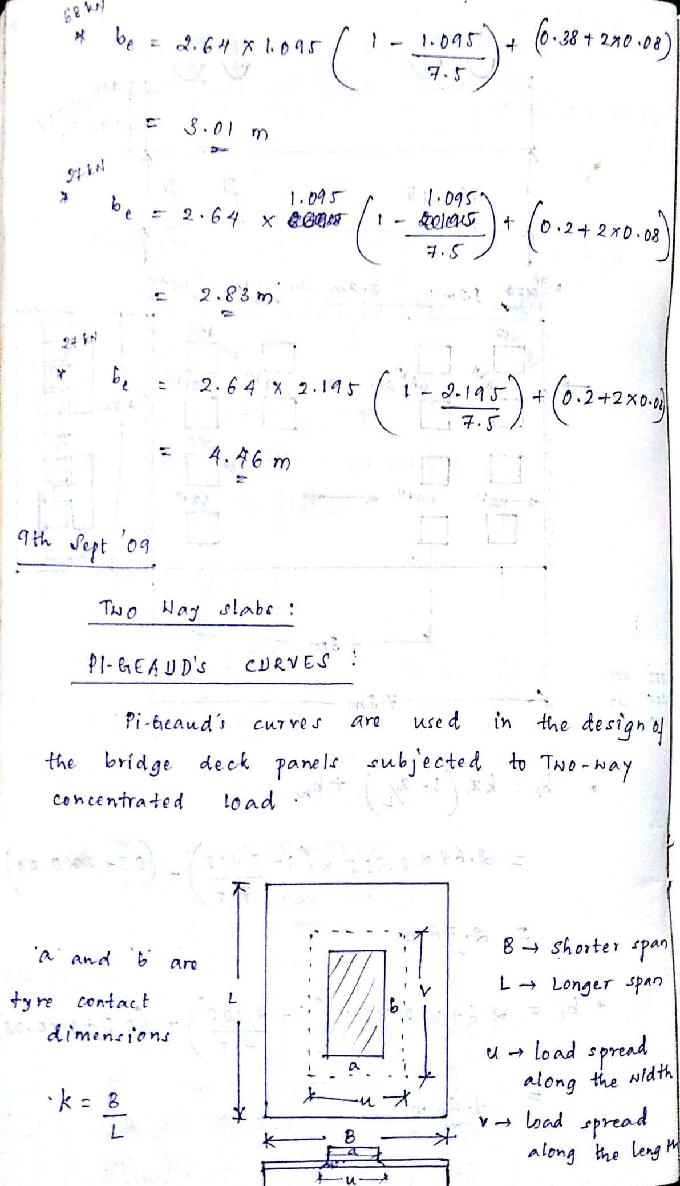 68 kN
* be = 2.64 x 1.095 ( 1 - 1.095 / 7.5 ) + (0.38 + 2x0.08)
= 3.01 m
27 kN
* be = 2.64 x 1.095 ( 1 - 1.095 / 7.5 ) + (0.2 + 2x0.08)
= 2.83 m
27 kN
* be = 2.64 x 2.195 ( 1 - 2.195 / 7.5 ) + (0.2+2x0.08
= 4.46 m
9th Sept '09
Two Way slabs :
PI-GEAUD'S CURVES :
Pi-Geaud's curves are used in the design of
the bridge deck panels subjected to Two-way
concentrated load .
'a' and 'b' are
tyre contact
dimensions
k = B / L
L
a
b
u
v
B
a
u
B → shorter span
L → Longer span
u → load spread
along the width
v → load spread
along the length